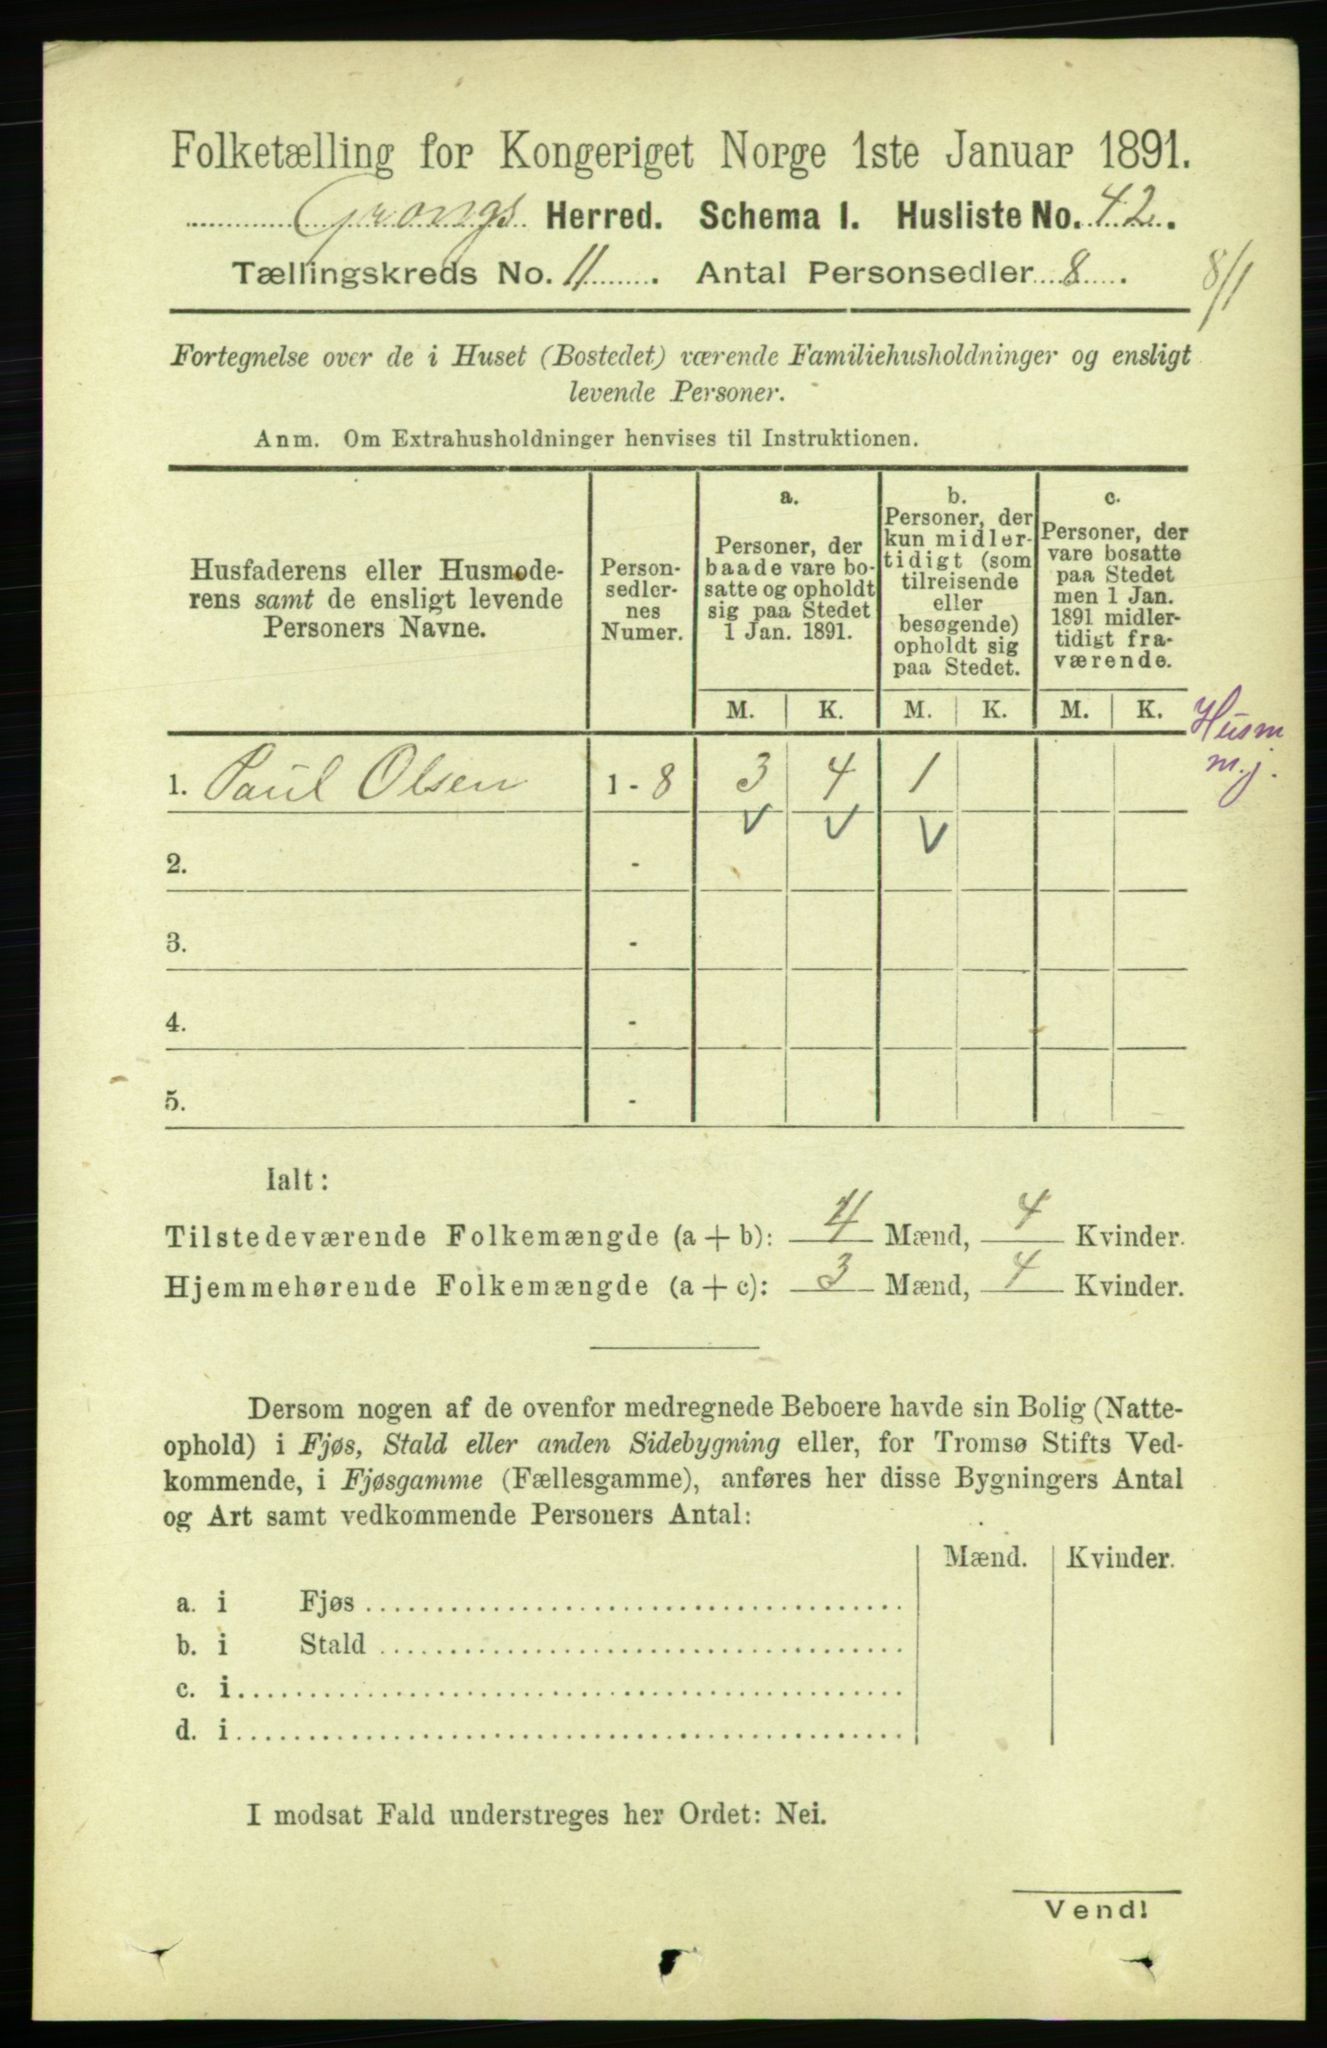 Folketælling for Kongeriget Norge 1ste Januar 1891.
Grongs Herred. Schema I. Husliste No. 42.
Tællingskreds No. 11. Antal Personsedler 8. 8/1
Fortegnelse over de i Huset (Bostedet) værende Familiehusholdninger og ensligt
levende Personer.
Anm. Om Extrahusholdninger henvises til Instruktionen.
Husfaderens eller Husmode-
rens samt de ensligt levende
Personers Navne.
Person-
sedler-
nes
Numer.
a.
Personer, der
baade vare bo-
satte og opholdt
sig paa Stedet
1 Jan. 1891.
b.
Personer, der
kun midler-
tidigt (som
tilreisende
eller
besøgende)
opholdt sig
paa Stedet.
c.
Personer, der
vare bosatte
paa Stedet
men 1 Jan.
1891 midler-
tidigt fra-
værende.
M. K. M. K. M. K.
Husm
m.j.
1. Paul Olsen 1 - 8 3 4 1
2. -
3. -
4. -
5. -
Ialt:
Tilstedeværende Folkemængde (a + b): 4 Mænd, 4 Kvinder.
Hjemmehørende Folkemængde (a + c): 3 Mænd, 4 Kvinder.
Dersom nogen af de ovenfor medregnede Beboere havde sin Bolig (Natte-
ophold) i Fjøs, Stald eller anden Sidebygning eller, for Tromsø Stifts Ved-
kommende, i Fjøsgamme (Fællesgamme), anføres her disse Bygningers Antal
og Art samt vedkommende Personers Antal:
Mænd. Kvinder.
a. i Fjøs
b. i Stald
c. i
d. i
I modsat Fald understreges her Ordet: Nei.
Vend!